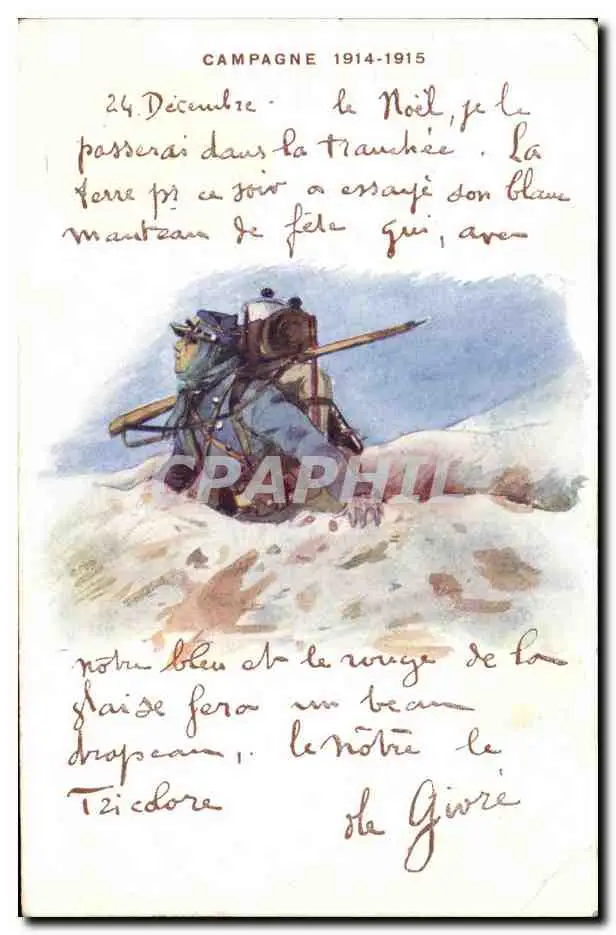 CAMPAGNE 1914-1915
24 Décembre - le Noël, je le
passerai dans la tranchée. La
terre pr ce soir a essayé son blanc
manteau de fête qui, avec
CPAPHIL
notre bleu et le rouge de la
glaise fera un beau
drapeau, le nôtre le
Tricolore
de Givré